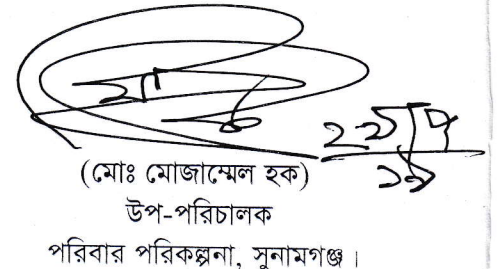 (মোঃ মোজাম্মেল হক)
উপ-পরিচালক
পরিবার পরিকল্পনা, সুনামগঞ্জ।